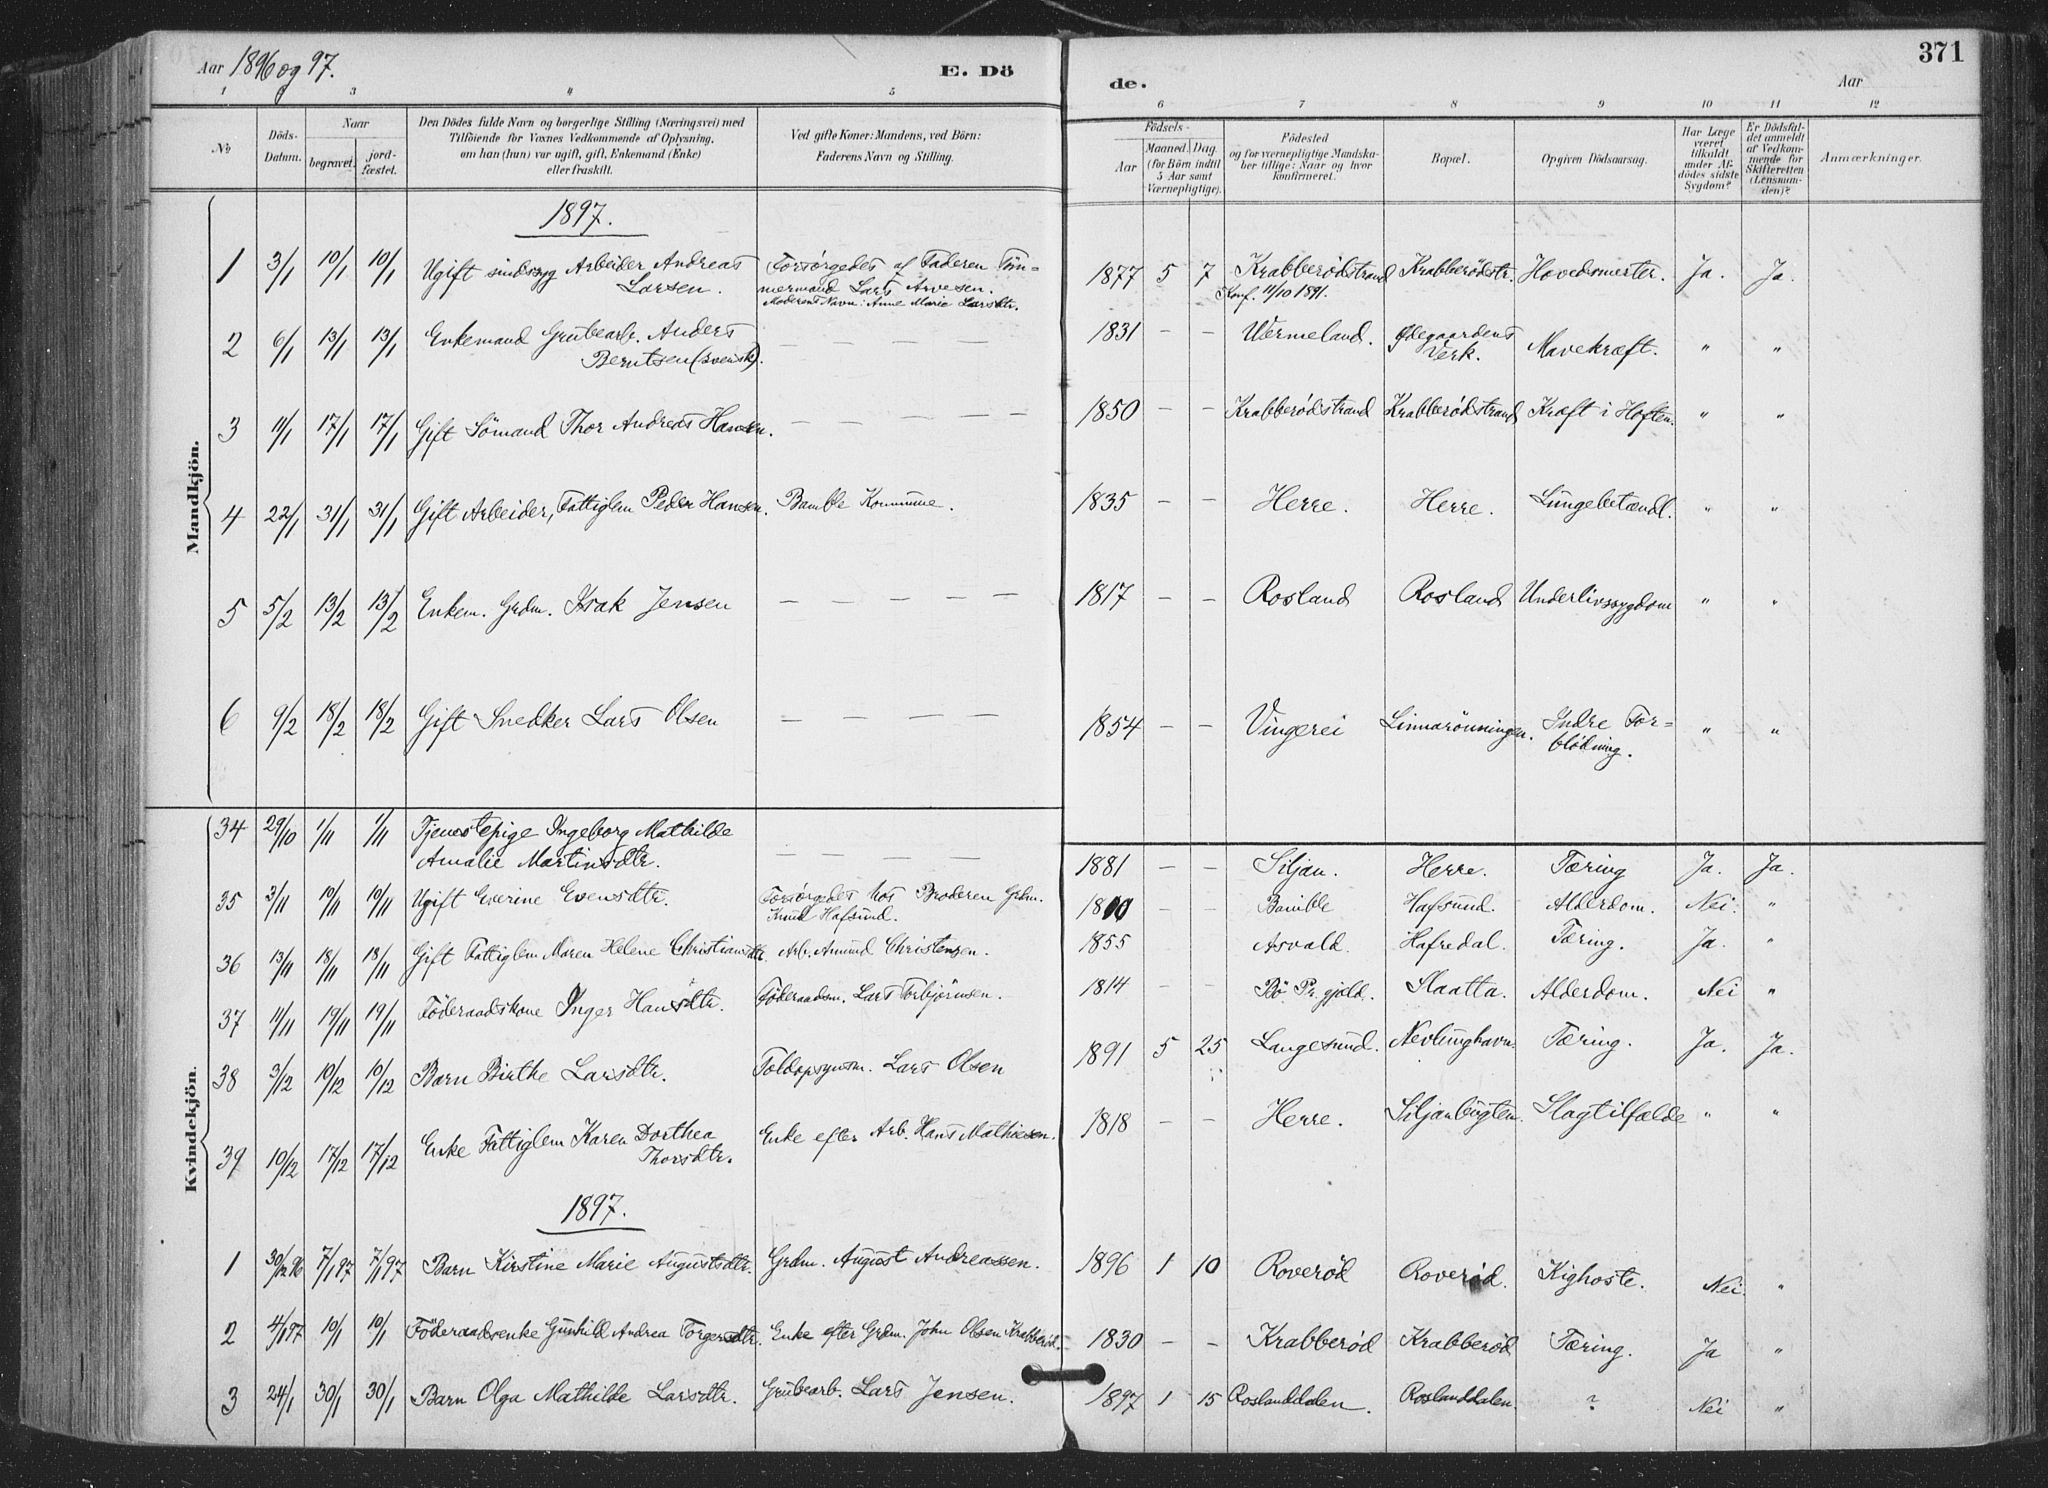 Aar 1896 og 97.
E. Dö
de.
Aar
371
1 3 4 5 6 7 8 9 10 11 12
No
Döds-Datum.
Naar
begravet.
jord-fæstet.
Den Dödes fulde Navn og borgerlige Stilling (Næringsvei) med
Tilföiende for Voxnes Vedkommende af Oplysning,
om han (hun) var ugift, gift, Enkemand (Enke)
eller fraskilt.
Ved gifte Koner: Mandens, ved Börn:
Faderens Navn og Stilling.
Födsels-
Aar
Maaned. Dag.
(for Börn indtil
5 Aar samt
Værnepligtige).
Födested
og for værnepligtige Mandska-
ber tillige: Naar og hvor
konfirmeret.
Bopæl.
Opgiven Dödsaarsag.
Har Læge
været
tilkaldt
under Af-
dödes sidste
Sygdom?
Er Dödsfal-
det anmeldt
af Vedkom-
mende for
Skifteretten
(Lensman-
den)?
Anmærkninger.
Mandkjön.
1897.
1 3/1 10/1 10/1 Ugift sindssyg Arbeider Andreas Larsen. Forsörgedes af Faderen Töm-mermand Lars Arvesen. Moderens Navn: Anne Marie Larsdtr. 1877 5 7 Krabberødstrand Konf. 11/10 1891. Krabberödstr. Hovedsmerter. Ja. Ja.
2 6/1 13/1 13/1 Enkemand Grubearb. Anders Berntsen (svensk). — — — — 1831 — — Wermeland. Ødegaardens Verk. Mavekræft. " "
3 11/1 17/1 17/1 Gift Sömand Thor Andreas Hansen. — — — — — 1850 — — Krabberødstrand Krabberødstrand Kræft i Hoften. " "
4 22/1 31/1 31/1 Gift Arbeider, Fattiglem Peder Hansen. Bamble Kommune. 1835 — — Herre. Herre. Lungebetændl. " "
5 5/2 13/2 13/2 Enkem. Grdm. Isak Jensen — — — — — 1817 — — Rosland Rosland Underlivssygdom " "
6 9/2 18/2 18/2 Gift Snedker Lars Olsen — — — — — 1854 — — Vingerei Linnarönningen. Indre For-blödning. " "
Kvindekjön.
34 29/10 1/11 1/11 Tjenestepige Ingeborg Mathilde Amalie Martinsdtr. — — — 1881 — — Siljan. Herre. Tæring Ja. Ja.
35 3/11 10/11 10/11 Ugift Everine Evensdtr. Forsörgedes hos Broderen Grdm. Knud Hafsund. 1810 — — Bamble Hafsund. Alderdom. Nei. "
36 13/11 18/11 18/11 Gift Fattiglem Maren Helene Christiansdtr. Arb. Amund Christensen. 1855 — — Asvald. Hafredal. Tæring. Ja. "
37 11/11 19/11 19/11 Föderaadskone Inger Hansdtr. Föderaadsm. Lars Torbjörnsen. 1814 — — Bö Pr.gjeld. Slaatta. Alderdom. Nei "
38 3/12 10/12 10/12 Barn Birthe Larsdtr. Toldopsynsm. Lars Olsen 1891 5 25 Langesund. Nevlunghavn. Tæring. Ja. Ja.
39 10/12 17/12 17/12 Enke Fattiglem Karen Dorthea Thorsdtr. Enke efter Arb. Hans Mathiesen. 1818 — — Herre. Siljanbugten. Slagtilfælde " "
1897.
1 30/12 96 7/1 97 7/1 97 Barn Kirstine Marie Augustsdtr. Grdm. August Andreassen. 1896 1 10 Roverød Roverød. Kighoste. Nei. "
2 4/1 97 10/1 10/1 Föderaadsenke Gunhild Andrea Torgersdtr. Enke efter Grdm. John Olsen Krabberød. 1830 — — Krabberød Krabberød Tæring. Ja "
3 24/1 30/1 30/1 Barn Olga Mathilde Larsdtr. Grubearb. Lars Jensen. 1897 1 15 Roslanddalen. Roslanddalen. ? Nei "